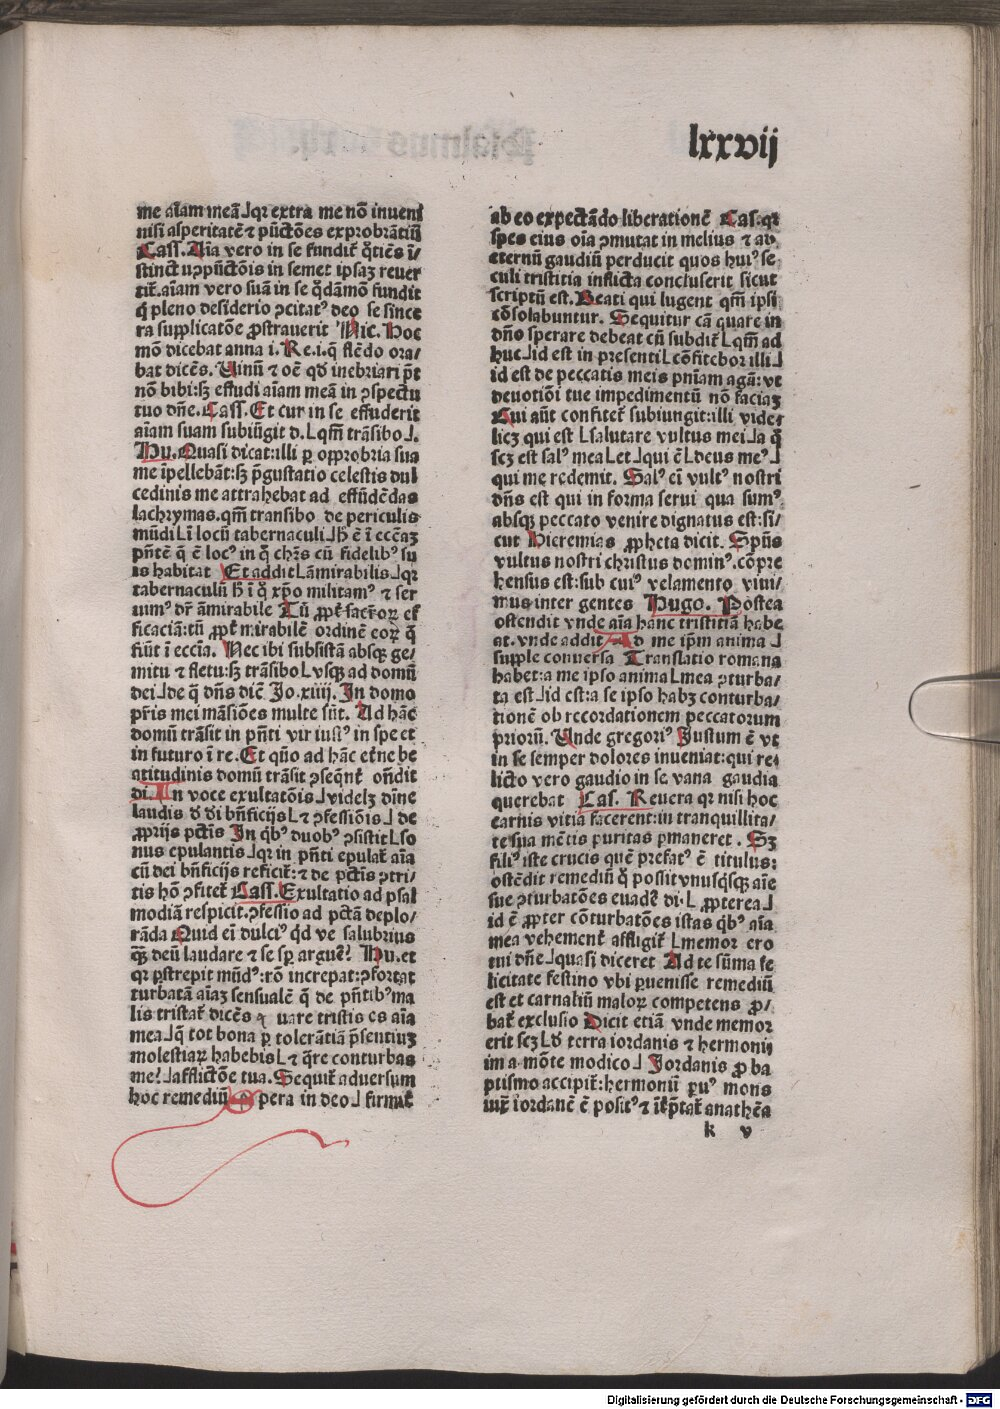 lxxvij
me aīam meā⅃qꝛ extra me nō inueni
nisi asperitatē ⁊ pūctōes exprobrātiū
Cass. Aīa vero in se fundit̉ q̄tiēs ī/
stinctu ꝯpūctōis in semet ipsaꝫ reuer
tit̉. aīam vero suā in se q̄dāmō fundit
q̄ pleno desiderio ꝯcitatꝰ deo se since
ra supplicatōe ꝓstrauerit Hic. Hoc
mō dicebat anna i. Re. i. q̄ flēdo ora/
bat dicēs. Uinū ⁊ oē qd̄ inebriari p̄t
nō bibi: sꝫ effudi aīam meā in ꝯspectu
tuo dn̄e. Cass. Et cur in se effuderit
aīam suam subiūgit d. L qm̄ trāsibo⅃.
Hu. Quasi dicat: illi ꝑ opprobria sua
me īpellebāt: sꝫ p̄gustatio celestis dul
cedinis me attrahebat ad effūdēdas
lachrymas. qm̄ transibo de periculis
mūdi L ī locū tabernaculi⅃ h̄ ē ī eccēaꝫ
pn̄tē q̄ ē locꝰ in q̄ chr̄s cū fidelibꝰ su
is habitat Et addit L āmirabilis⅃qꝛ
tabernaculū h̄ ī q̄ xp̄o militamꝰ ⁊ ser
uimꝰ dr̄ āmirabile Tū ꝓpt̉ sacr̄oꝝ ef
ficaciā: tū ꝓpt̉ mirabilē ordinē eoꝝ q̄
fiūt ī ecc̄ia. Nec ibi subsistā absqꝫ ge/
mitu ⁊ fletu: sꝫ trāsibo L vsqꝫ ad domū
dei⅃de q̄ dn̄s dic̄ Jo. xiiij. In domo
pr̄is mei māsiōes multe sūt. Ad hāc
domū trāsit in pn̄ti vir iustꝰ in spe et
in futuro ī re. Et quō ad hāc et̉ne be
atitudinis domū trāsit ꝯseq̄nt̉ on̄dit
di. In voce exultatōis⅃videlꝫ diīne
laudis d̄ di bn̄ficijs L ⁊ ꝯfessiōis⅃ de
ꝓprijs pctīs In q̄bꝰ duobꝰ ꝯsistit L so
nus epulantis⅃qꝛ in pn̄ti epulat̉ aīa
cū dei bn̄ficijs reficit̉: ⁊ de pctīs ꝯtri/
tis hō ꝯfitet̉ Cass. Exultatio ad psal
modiā respicit. ꝯfessio ad pctā deplo/
rāda Quid eī dulciꝰ qd̄ ve salubrius
q̄ꝫ deū laudare ⁊ se sp̄ arguē? Hu. et
qꝛ p̄strepit mūdꝰ: rō increpat: ꝯfortat
turbatā aīaꝫ sensualē q̄ de pn̄tibꝰ ma
lis tristat̉ dicēs q uare tristis es aīa
mea⅃q̄ tot bona ꝑ tolerātiā p̄sentiuꝫ
molestiaꝝ habebis L ⁊ q̄re conturbas
me?⅃afflictōe tua. Sequit̉ aduersum
hoc remediū S pera in deo⅃ firmit̉
ab eo expectādo liberationē Cas. qꝛ
spes eius oīa ꝯmutat in melius ⁊ ad
eternū gaudiū perducit quos huiꝰ se
culi tristitia inflicta concluserit sicut
scriptū est. Beati qui lugent qm̄ ipsi
cōsolabuntur. Sequitur cā quare in
dn̄o sperare debeat cū subdit̉ L qm̄ ad
huc⅃id est in presenti L cōfitebor illi⅃
id est de peccatis meis pn̄iam agā: vt
deuotiōi tue impedimentū nō faciaꝫ
Cui aūt confiter̉ subiungit: illi vide/
licꝫ qui est L salutare vultus mei⅃a q̄
scꝫ est salꝰ mea L et⅃qui ē L deus meꝰ⅃
qui me redemit. Salꝰ eī vultꝰ nostri
dn̄s est qui in forma serui qua sumꝰ
absqꝫ peccato venire dignatus est: si/
cut Hieremias ꝓpheta dicit. Spūs
vultus nostri christus dominꝰ. cōpre
hensus est: sub cuiꝰ velamento viui/
mus inter gentes Hugo. Postea
ostendit vnde aīa hanc tristitiā habe
at. vnde addit A d me ip̄m anima⅃
supple conuersa Translatio romana
habet: a me ipso anima L mea ꝯturba/
ta est⅃id est: a se ipso habꝫ conturba/
tionē ob recordationem peccatorum
priorū. Unde gregoriꝰ Justum ē vt
in se semper dolores inueniat: qui re/
licto vero gaudio in se vana gaudia
querebat Cas. Reuera qꝛ nisi hoc
carnis vitia facerent: in tranquillita/
te sua mētis puritas ꝑmaneret. Sꝫ
filiꝰ iste crucis quē prefatꝰ ē titulus:
ostēdit remediū q̄ possit vnusq̄sqꝫ aīe
sue ꝯturbatōes euadē di. L ꝓpterea⅃
id ē ꝓpter cōturbatōes istas q̄bꝰ aīa
mea vehement̉ affligit̉ L memor ero
tui dn̄e⅃quasi diceret Ad te sūma fe
licitate festino vbi ꝑuenisse remediū
est et carnaliū maloꝝ competens ꝓ/
bat̉ exclusio Dicit etiā vnde memor
erit scꝫ L d̄ terra iordanis ⁊ hermonij
im a mōte modico⅃ Jordanis ꝓ ba
ptismo accipit̉: hermoniū ꝑuꝰ mons
iuxꝶ iordanē ē positꝰ ⁊ īt̉p̄tat̉ anathēa
k v
Digitalisierung gefördert durch die Deutsche Forschungsgemeinschaft - DFG